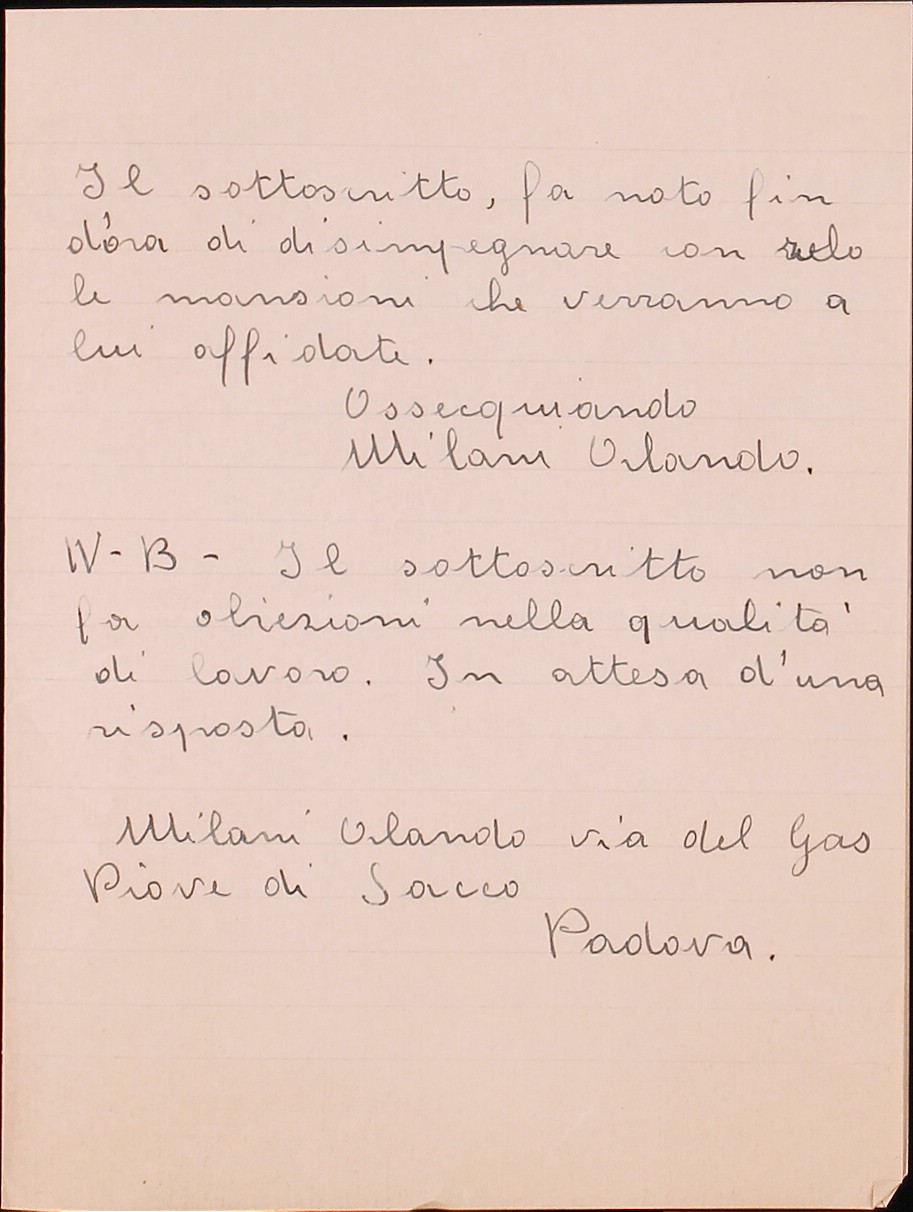 Il sottoscritto, fa noto fin
d'ora di disimpegnare con zelo
le mansioni che verranno a
lui affidate.
Ossecquiando
Milani Orlando.
N-B- Il sottoscritto non
fa obiezioni nella qualità
di lavoro. In attesa d'una
risposta.
Milani Orlando via del Gas
Piove di Sacco
Padova.